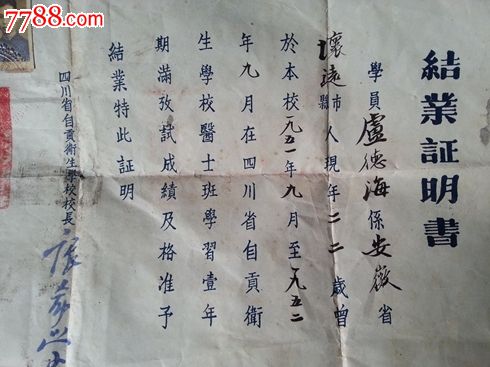 7788.com
結業証明書
學員盧德海係安徽省
懷遠縣市人現年二二歲曾
於本校一九五一年九月至一九五二
年九月在四川省自貢衛
生學校醫士班學習壹年
期滿攷試成績及格准予
結業特此証明
四川省自貢衛生學校校長